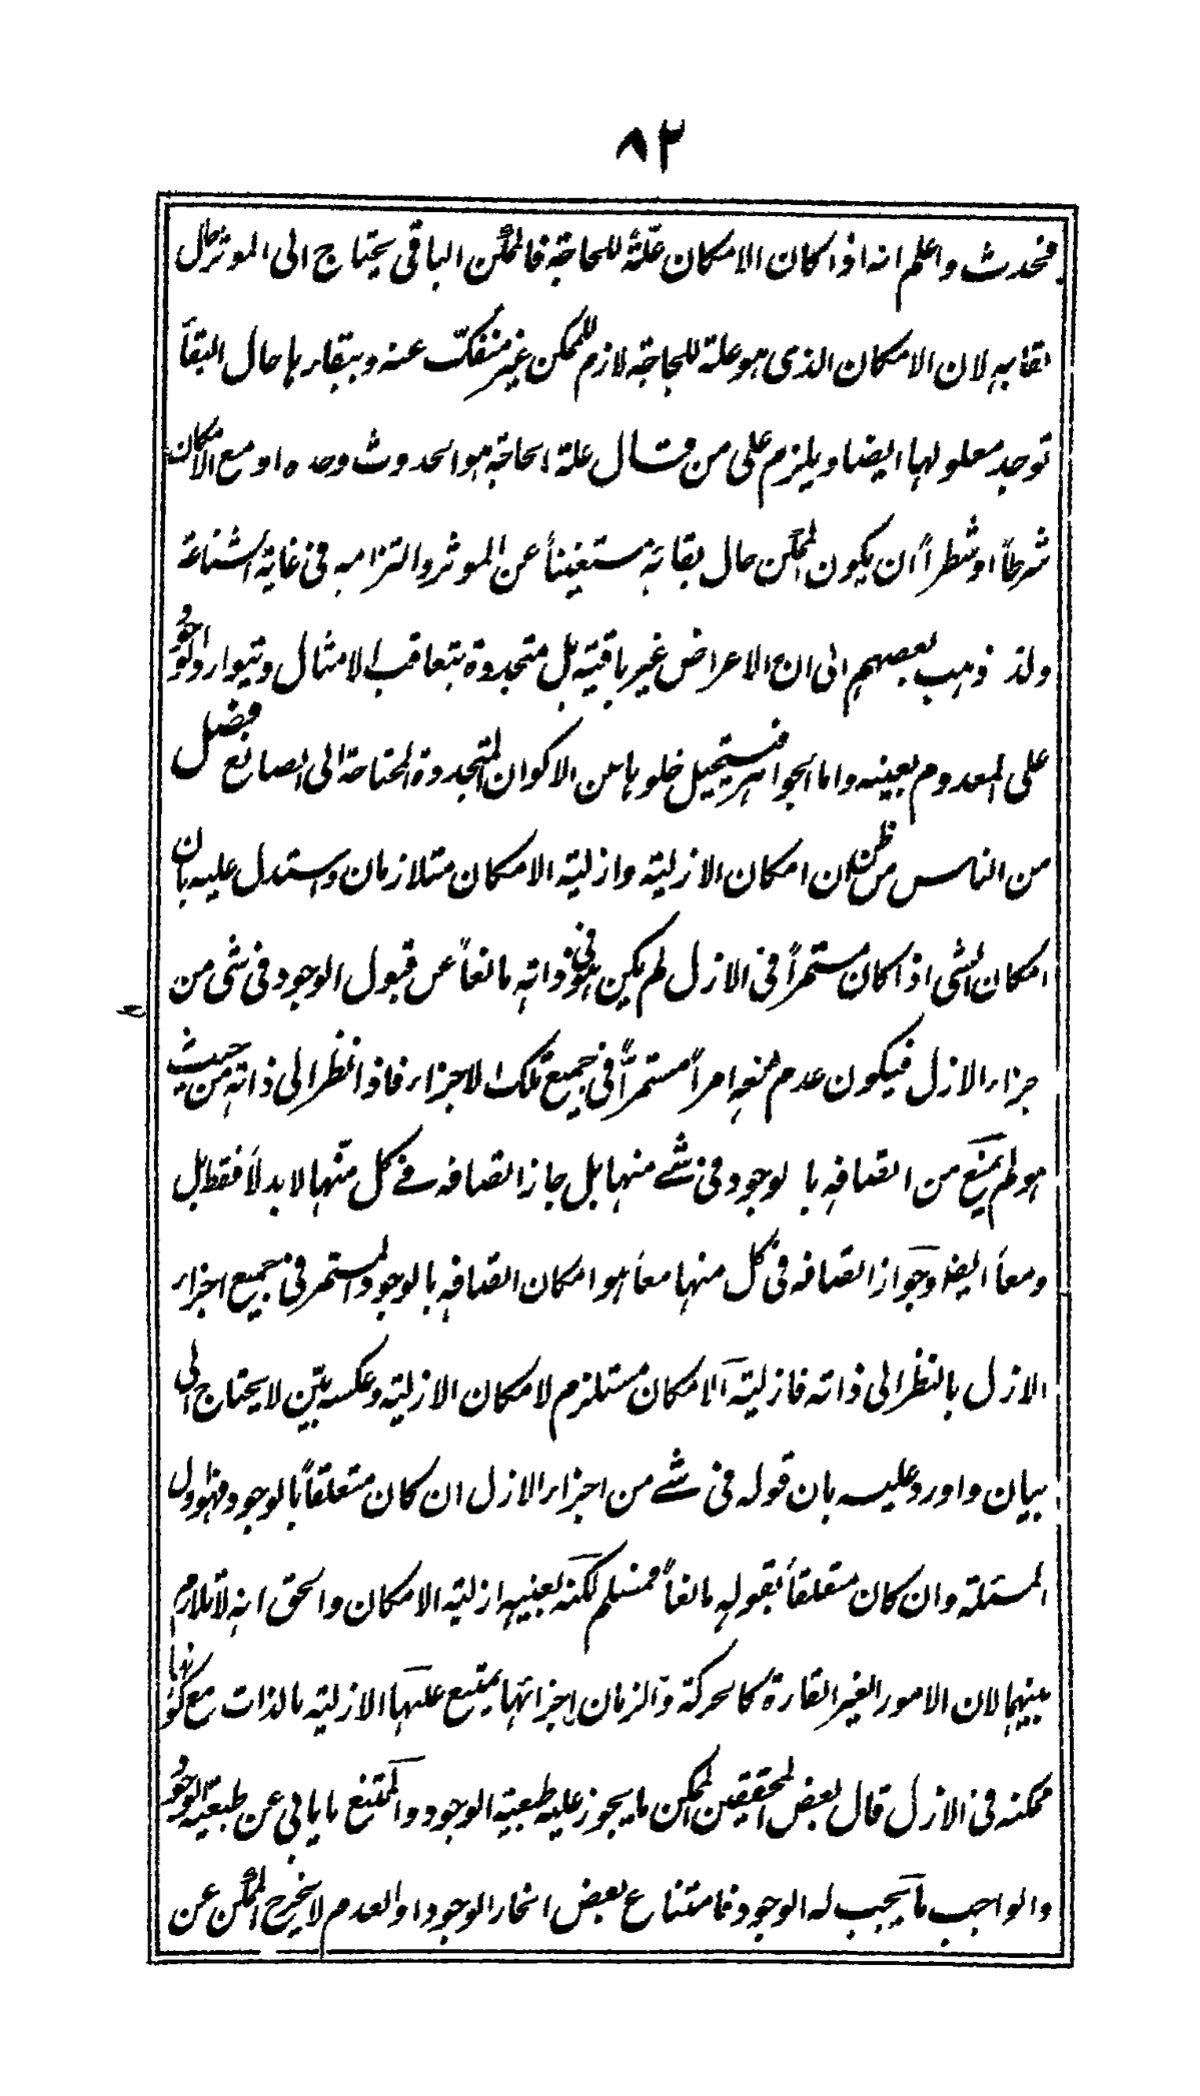 ٨٢
فحدث واعلم انه اذا كان الامكان علّةً للحاجة فالممكن الباقى يحتاج الى الموثر حال
بقايه لان الامكان الذى هو علة للحاجة لازم للممكن غير منفكّ عنه وببقاء ها حال البقأ
توجد معلولها ايضا ويلزم على من قال علة الحاجة هو الحدوث وحده او مع الامكان
شرطاً او شطراً ان يكون الممكن حال بقايه مستغنيناً عن الموثر والتزامه فى غاية الشناعة
ولذ ذهب بعضهم الى ان الاعراض غير باقية بل متجددة بتعاقب الامثال وتيوارد الوجود
على المعدوم بعينه واما الجواهر فيستحيل خلوها من الاكوان المتجددة المحتاجة الى الصانع فضل
من الناس من ظن ان امكان الازلية وازلية الامكان متلازمان واستدل عليه بان
امكان الشى اذا كان مستمراً فى الازل لم يكن هو فى ذاته مانعاً عن قبول الوجود فى شى من
جزاء الازل فيكون عدم منعه امراً مستمراً فى جميع تلك الاجزاء فاذا نظر الى ذاته من حيث
هو لم يمنع من اتصافه با لوجود فى شے منها بل جاز اتصافه فے كل منها لا بدلاً فقط بل
ومعاً ايضا وجواز اتصافه فى كل منها معاً هو امكان اتصافه بالوجود المستمر فى جميع اجزاء
الازل بالنظر الى ذاته فازلية الامكان مستلزم لامكان الازلية وعكسه بيّن لا يحتاج الى
بيان واورد عليه بان قوله فى شے من اجزاء الازل ان كان متعلقاً بالوجود فهو اول
المسئلة وان كان متعلقاً بقوله مانعاً فمسلم لكنه بعينه ازلية الامكان والحق انه لا تلازم
بينهما لان الامور الغير القارة كالحركة والزمان واجزائها يمتنع عليها الازلية بالذات مع كونها
ممكنه فى الازل قال بعض المحققين الممكن ما يجوز عليه طبعية الوجود والممتنع ما يابى عن طبعية الوجود
والواجب ما يجب له الوجود فامتناع بعض انحاء الوجود او العدم لا يخرج الممكن عن